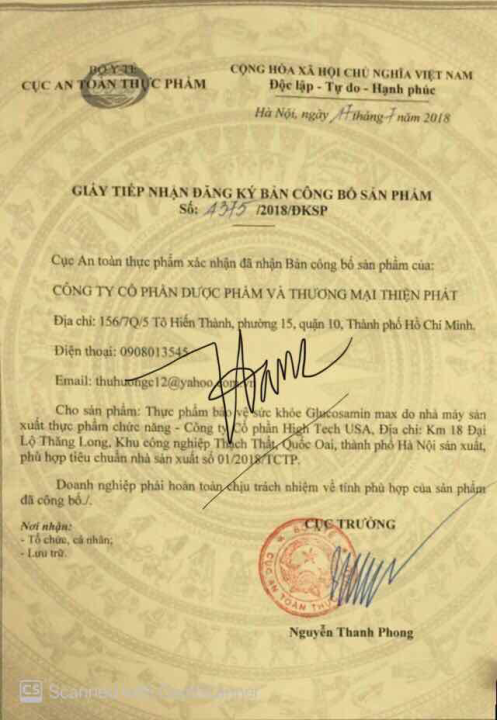 BỘ Y TẾ
CỤC AN TOÀN THỰC PHẨM
CỘNG HÒA XÃ HỘI CHỦ NGHĨA VIỆT NAM
Độc lập - Tự do - Hạnh phúc
Hà Nội, ngày 17 tháng 7 năm 2018
GIẤY TIẾP NHẬN ĐĂNG KÝ BẢN CÔNG BỐ SẢN PHẨM
Số: 4375 /2018/ĐKSP
Cục An toàn thực phẩm xác nhận đã nhận Bản công bố sản phẩm của:
CÔNG TY CỔ PHẦN DƯỢC PHẨM VÀ THƯƠNG MẠI THIỆN PHÁT
Địa chỉ: 156/7Q/5 Tô Hiến Thành, phường 15, quận 10, Thành phố Hồ Chí Minh.
Điện thoại: 0908013545
Email: thuhuongc12@yahoo.com.vn
Cho sản phẩm: Thực phẩm bảo vệ sức khỏe Glucosamin max do nhà máy sản
xuất thực phẩm chức năng - Công ty Cổ phần High Tech USA, Địa chỉ: Km 18 Đại
Lộ Thăng Long, Khu công nghiệp Thạch Thất, Quốc Oai, thành phố Hà Nội sản xuất,
phù hợp tiêu chuẩn nhà sản xuất số 01/2018/TCTP.
Doanh nghiệp phải hoàn toàn chịu trách nhiệm về tính phù hợp của sản phẩm
đã công bố./.
Nơi nhận:
- Tổ chức, cá nhân;
- Lưu trữ.
CỤC TRƯỞNG
CỤC AN TOÀN THỰC
Nguyễn Thanh Phong
CS Scanned with CamScanner